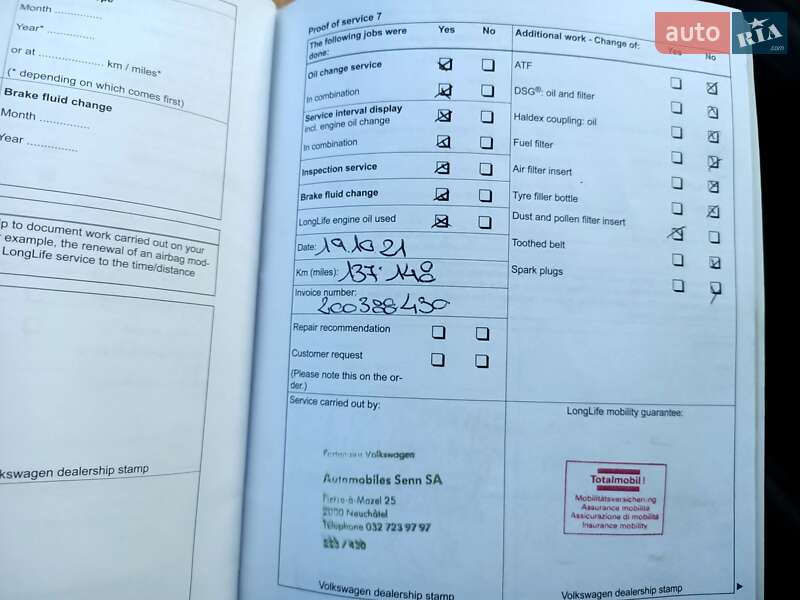 Month ...............
Year* ...............
or at ................... km / miles*
(* depending on which comes first)
Brake fluid change
Month ...............
Year ...............
to document work carried out on your
example, the renewal of an airbag mod-
LongLife service to the time/distance
dealership stamp
Proof of service 7
The following jobs were done:
Yes
No
Oil change service
In combination
Service interval display
incl. engine oil change
In combination
Inspection service
Brake fluid change
LongLife engine oil used
Date: 19.10 21
Km (miles): 137.148
Invoice number:
200388430
Repair recommendation
Customer request
(Please note this on the or-
der.)
Service carried out by:
Volkswagen
Automobiles Senn SA
Pierre-à-Mazel 25
2000 Neuchâtel
Téléphone 032 723 97 97
Volkswagen dealership stamp
Additional work - Change of:
Yes
No
ATF
DSG®: oil and filter
Haldex coupling: oil
Fuel filter
Air filter insert
Tyre filler bottle
Dust and pollen filter insert
Toothed belt
Spark plugs
LongLife mobility guarantee:
Totalmobil!
Mobilitätsversicherung
Assurance mobilité
Assicurazione di mobilità
Insurance mobility
Volkswagen dealership stamp
auto RIA .com